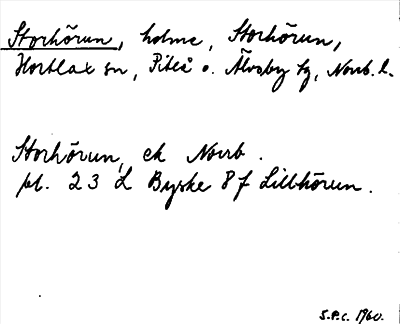 Storhörun, holme, Storhörun,
Hortlax sn, Piteå o. Älvsby tg, Norrb. l.
Storhörun, ek Norrb.
bl. 23 L Byske 8 f Lillhörun.
S.P.C. 1960.